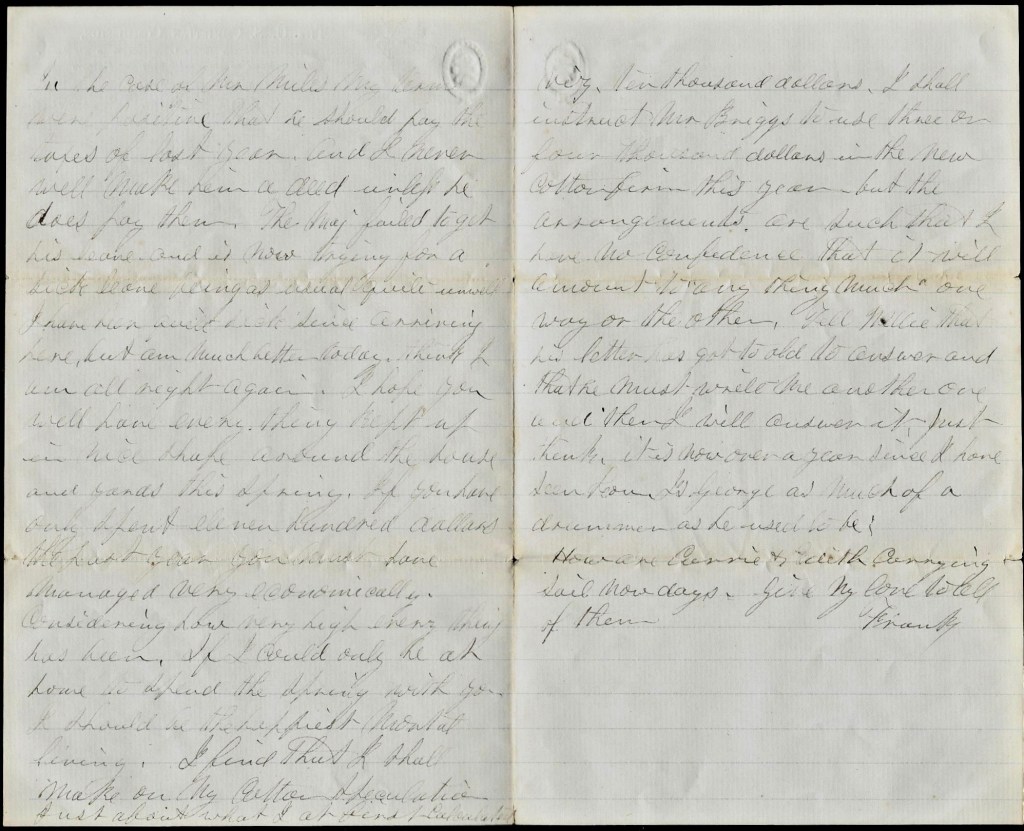 In the case of Mr Miles My terms
were positive that he should pay the
taxes of last year. and I never
will make him a deed unless he
does pay them. The Maj failed to get
his leave and is now trying for a
sick leave being as usual quite unwell
I have been quite sick since arriving
here, but am much better today. think I
am all right again. I hope you
will have every thing kept up
in nice shape around the house
and yards this Spring. If you have
only spent eleven hundred dollars
the past year you must have
managed very economically
Considering how very high every thing
has been. If I could only be at
home to spend the spring with you
I should be the happiest Mortal
living. I find that I shall
make on my Cotton Speculation
Just about what I at first calculated
viz. Ten thousand dollars. I shall
instruct Mr Briggs to use three or
four thousand dollars in the new
Cotton firm this year - but the
arrangements. are such that I
have no Confidence that it will
amount to "any thing much" one
way or the other. Tell Willie that
his letter has got to old to answer and
that he must write me another one
and then I will answer it - Just
think. it is now over a year since I have
seen you. Is George as much of a
drummer as he used to be?
How are Carrie & Edith Carrying
sail now days. Give my love to all
of them Frank